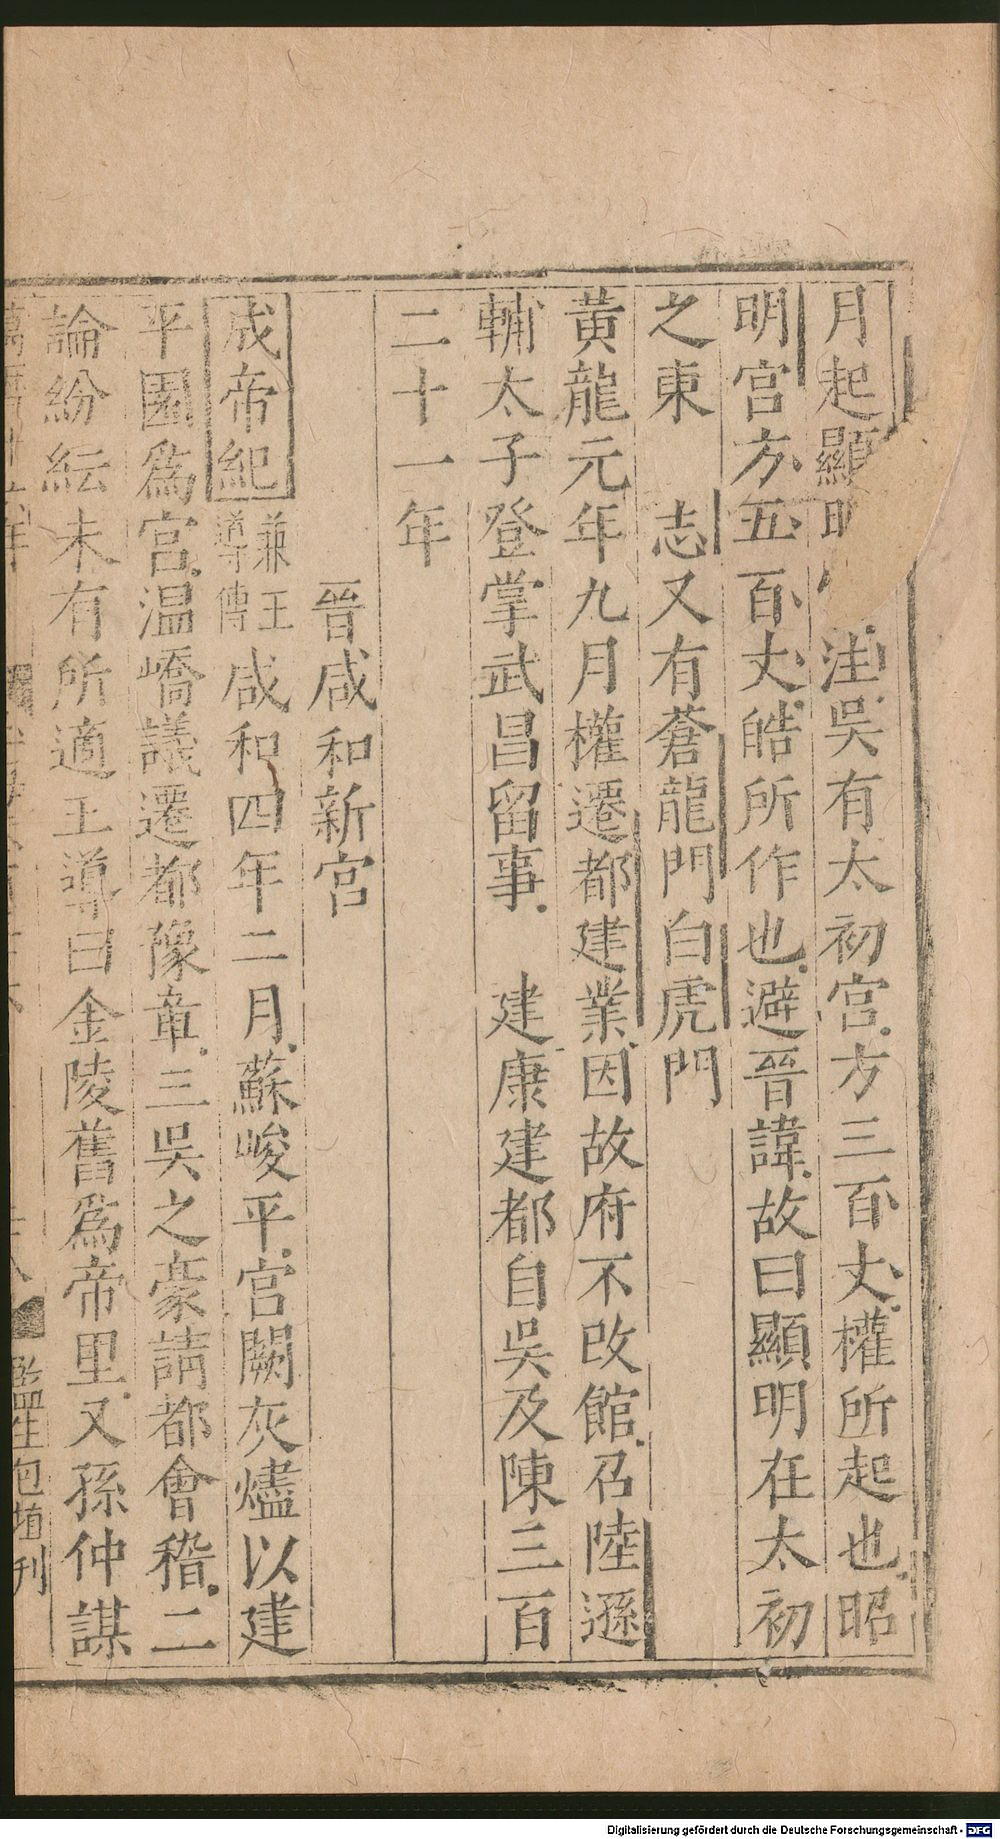 月起顯明 注吳有太初宮方三百丈權所起也昭
明宮方五百丈皓所作也避晉諱故曰顯明在太初
之東 志又有蒼龍門白虎門
黃龍元年九月權遷都建業因故府不改館召陸遜
輔太子登掌武昌留事 建康建都自吳及陳三百
二十一年
晉咸和新宮
成帝紀兼王導傳咸和四年二月蘇峻平宮闕灰燼以建
平園爲宮温嶠議遷都豫章三吳之豪請都會稽二
論紛紜未有所適王導曰金陵舊爲帝里又孫仲謀
監生包埴刊
Digitalisierung gefördert durch die Deutsche Forschungsgemeinschaft - DFG